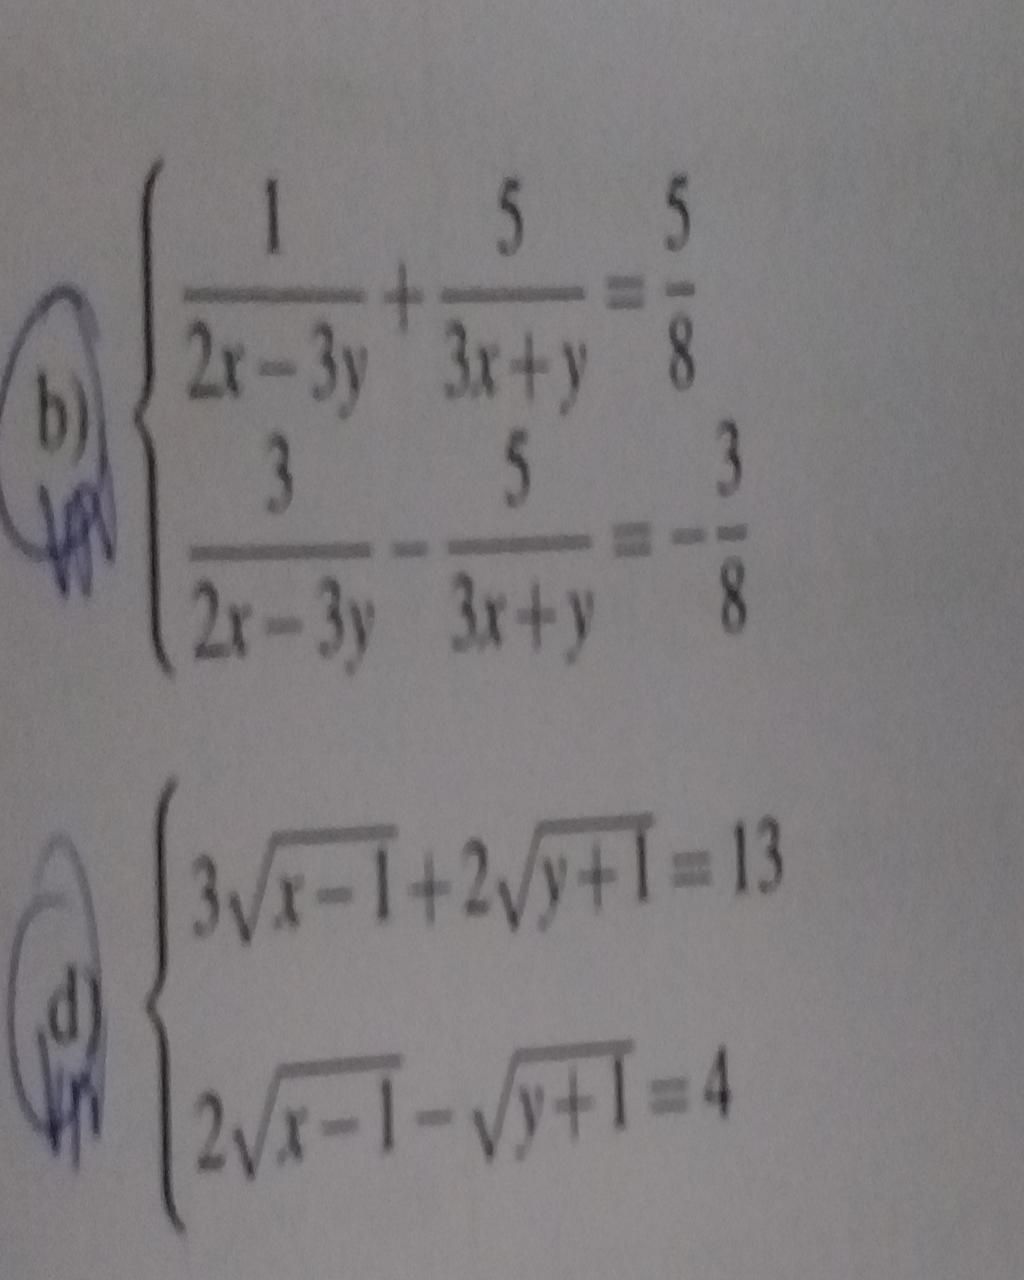 b) { 1/(2x − 3y) + 5/(3x + y) = 5/8
3/(2x − 3y) − 5/(3x + y) = −3/8
d) { 3√(x − 1) + 2√(y + 1) = 13
2√(x − 1) − √(y + 1) = 4